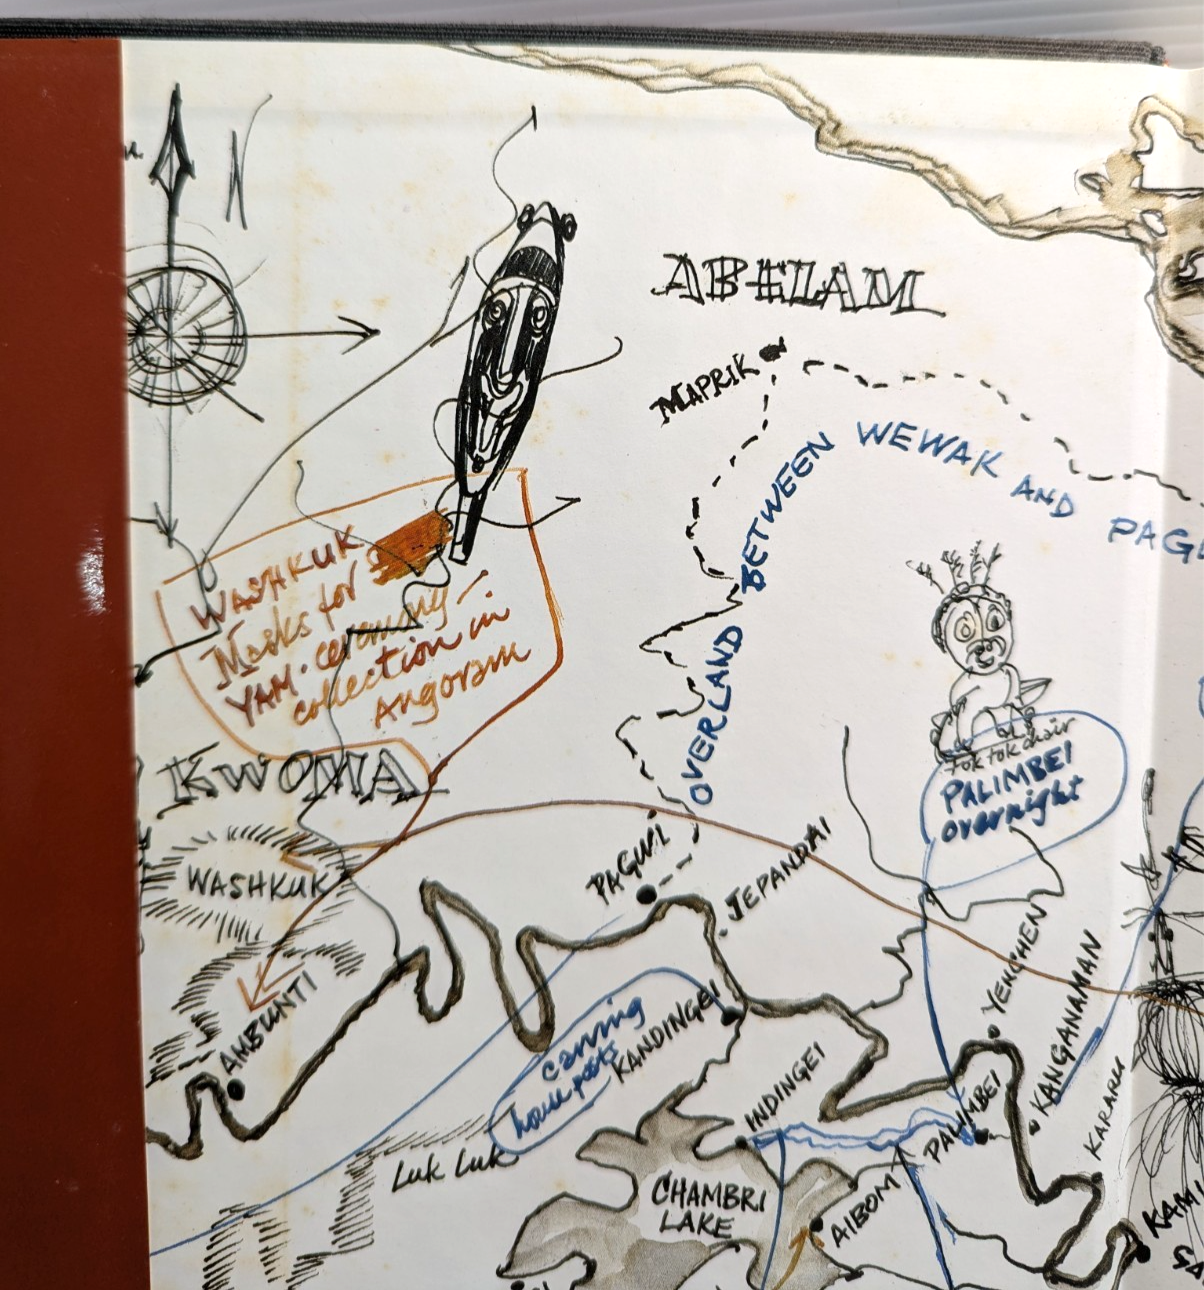 N
ABELAM
MAPRIK
OVERLAND BETWEEN WEWAK AND PAG
WASHKUK
Masks for
YAM-ceremony-
collection in
Angoram
tok tok chair
PALIMBEI
overnight
KWOMA
WASHKUK
PAGWI
JEPANDAI
AMBUNTI
YENCHEN
KANGANAMAN
carving
house posts
KANDINGEI
INDINGEI
PALIMBEI
KARARU
Luk Luk
CHAMBRI
LAKE
AIBOM
KAMI
SA